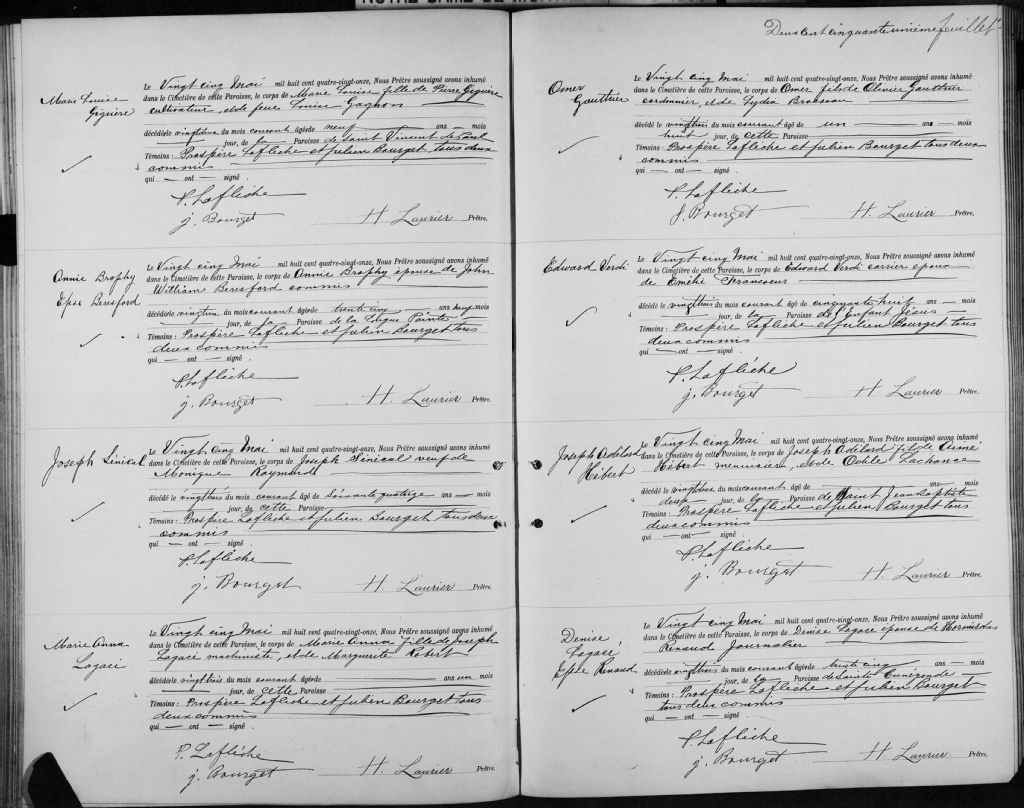 NOTRE DAME DE
Deux cent cinquante unième feuillet
Marie Louise
Giguère
Le Vingt cinq Mai mil huit cent quatre-vingt-onze, Nous Prêtre soussigné avons inhumé
dans le Cimetière de cette Paroisse, le corps de Marie Louise fille de Pierre Giguère
cultivateur, et de feue Louise Gagnon
décédé le vingt deux du mois courant âgé de neuf ans — mois
— jour, de la Paroisse de Saint Vincent de Paul
Témoins : Prospère Laflèche et Julien Bourget tous deux
commis
qui — ont — signé .
P. Laflèche
J. Bourget H. Laurier Prêtre.
Annie Brophy
Epse Beresford
Le Vingt cinq Mai mil huit cent quatre-vingt-onze, Nous Prêtre soussigné avons inhumé
dans le Cimetière de cette Paroisse, le corps de Annie Brophy épouse de John
William Beresford commis
décédé le vingt un du mois courant âgé de trente cinq ans neuf mois
— jour, de la Paroisse de la Longue Pointe
Témoins : Prospère Laflèche et Julien Bourget tous
deux commis
qui — ont — signé .
P. Laflèche
J. Bourget H. Laurier Prêtre.
Joseph Sénécal
Le Vingt cinq Mai mil huit cent quatre-vingt-onze, Nous Prêtre soussigné avons inhumé
dans le Cimetière de cette Paroisse, le corps de Joseph Sénécal veuf de
Monique Raymond
décédé le vingt trois du mois courant âgé de soixante quatorze ans — mois
— jour, de cette Paroisse
Témoins : Prospère Laflèche et Julien Bourget tous deux
commis
qui — ont — signé .
P. Laflèche
J. Bourget H. Laurier Prêtre.
Marie Anna
Lagacé
Le Vingt cinq Mai mil huit cent quatre-vingt-onze, Nous Prêtre soussigné avons inhumé
dans le Cimetière de cette Paroisse, le corps de Marie Anna fille de Joseph
Lagacé machiniste, et de Marguerite Robert
décédé le vingt trois du mois courant âgé de — ans un mois
— jour, de cette Paroisse
Témoins : Prospère Laflèche et Julien Bourget tous
deux commis
qui — ont — signé .
P. Laflèche
J. Bourget H. Laurier Prêtre.
Omer
Gauthier
Le Vingt cinq Mai mil huit cent quatre-vingt-onze, Nous Prêtre soussigné avons inhumé
dans le Cimetière de cette Paroisse, le corps de Omer fils de Olivier Gauthier
cordonnier, et de Lydia Brabseau
décédé le vingt trois du mois courant âgé de un an — mois
huit jour, de cette Paroisse
Témoins : Prospère Laflèche et Julien Bourget tous deux
commis
qui — ont — signé .
P. Laflèche
J. Bourget H. Laurier Prêtre.
Edward Verdi
Le Vingt cinq Mai mil huit cent quatre-vingt-onze, Nous Prêtre soussigné avons inhumé
dans le Cimetière de cette Paroisse, le corps de Edward Verdi carrier époux
de Emélie Francoeur
décédé le vingt trois du mois courant âgé de cinquante huit ans — mois
— jour, de la Paroisse de l'Enfant Jésus
Témoins : Prospère Laflèche et Julien Bourget tous
deux commis
qui — ont — signé .
P. Laflèche
J. Bourget H. Laurier Prêtre.
Joseph Adélard
Hébert
Le Vingt cinq Mai mil huit cent quatre-vingt-onze, Nous Prêtre soussigné avons inhumé
dans le Cimetière de cette Paroisse, le corps de Joseph Adélard fils de Aimé
Hébert menuisier, et de Odile Lachance
décédé le vingt deux du mois courant âgé de — ans — mois
deux jour, de la Paroisse de Saint Jean Baptiste
Témoins : Prospère Laflèche et Julien Bourget tous
deux commis
qui — ont — signé .
P. Laflèche
J. Bourget H. Laurier Prêtre.
Denise
Lagacé
Epse Renaud
Le Vingt cinq Mai mil huit cent quatre-vingt-onze, Nous Prêtre soussigné avons inhumé
dans le Cimetière de cette Paroisse, le corps de Denise Lagacé épouse de Hormisdas
Renaud Journalier
décédé le vingt trois du mois courant âgé de trente cinq ans — mois
— jour, de la Paroisse de Sainte Cunégonde
Témoins : Prospère Laflèche et Julien Bourget
tous deux commis
qui — ont — signé .
P. Laflèche
J. Bourget H. Laurier Prêtre.